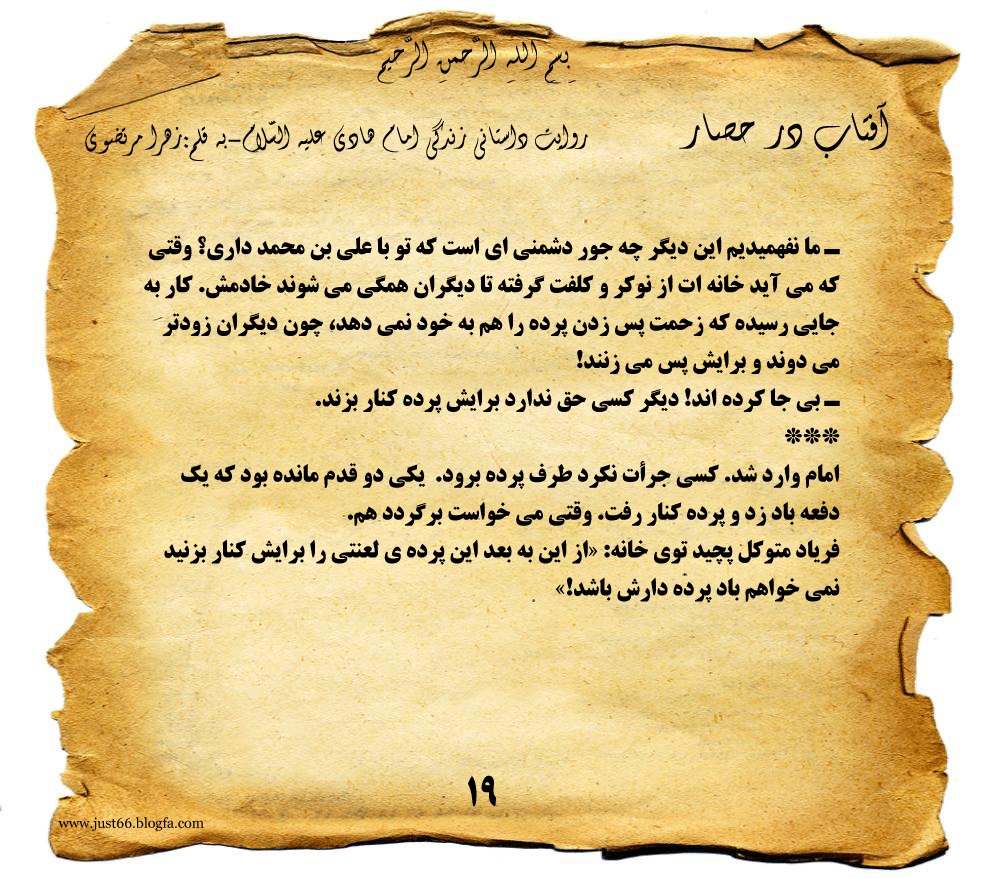 بِسمِ اللهِ الرَّحمنِ الرَّحیمِ
آفتاب در حصار
روایت داستانی زندگی امام هادی علیه السّلام-به قلم:زهرا مرتضوی
ـ ما نفهمیدیم این دیگر چه جور دشمنی ای است که تو با علی بن محمد داری؟ وقتی
که می آید خانه ات از نوکر و کلفت گرفته تا دیگران همگی می شوند خادمش. کار به
جایی رسیده که زحمت پس زدن پرده را هم به خود نمی دهد، چون دیگران زودتر
می دوند و برایش پس می زنند!
ـ بی جا کرده اند! دیگر کسی حق ندارد برایش پرده کنار بزند.
***
امام وارد شد. کسی جرأت نکرد طرف پرده برود. یکی دو قدم مانده بود که یک
دفعه باد زد و پرده کنار رفت. وقتی می خواست برگردد هم.
فریاد متوکل پچید توی خانه: «از این به بعد این پرده ی لعنتی را برایش کنار بزنید
نمی خواهم باد پرده دارش باشد!»
۱۹
www.just66.blogfa.com